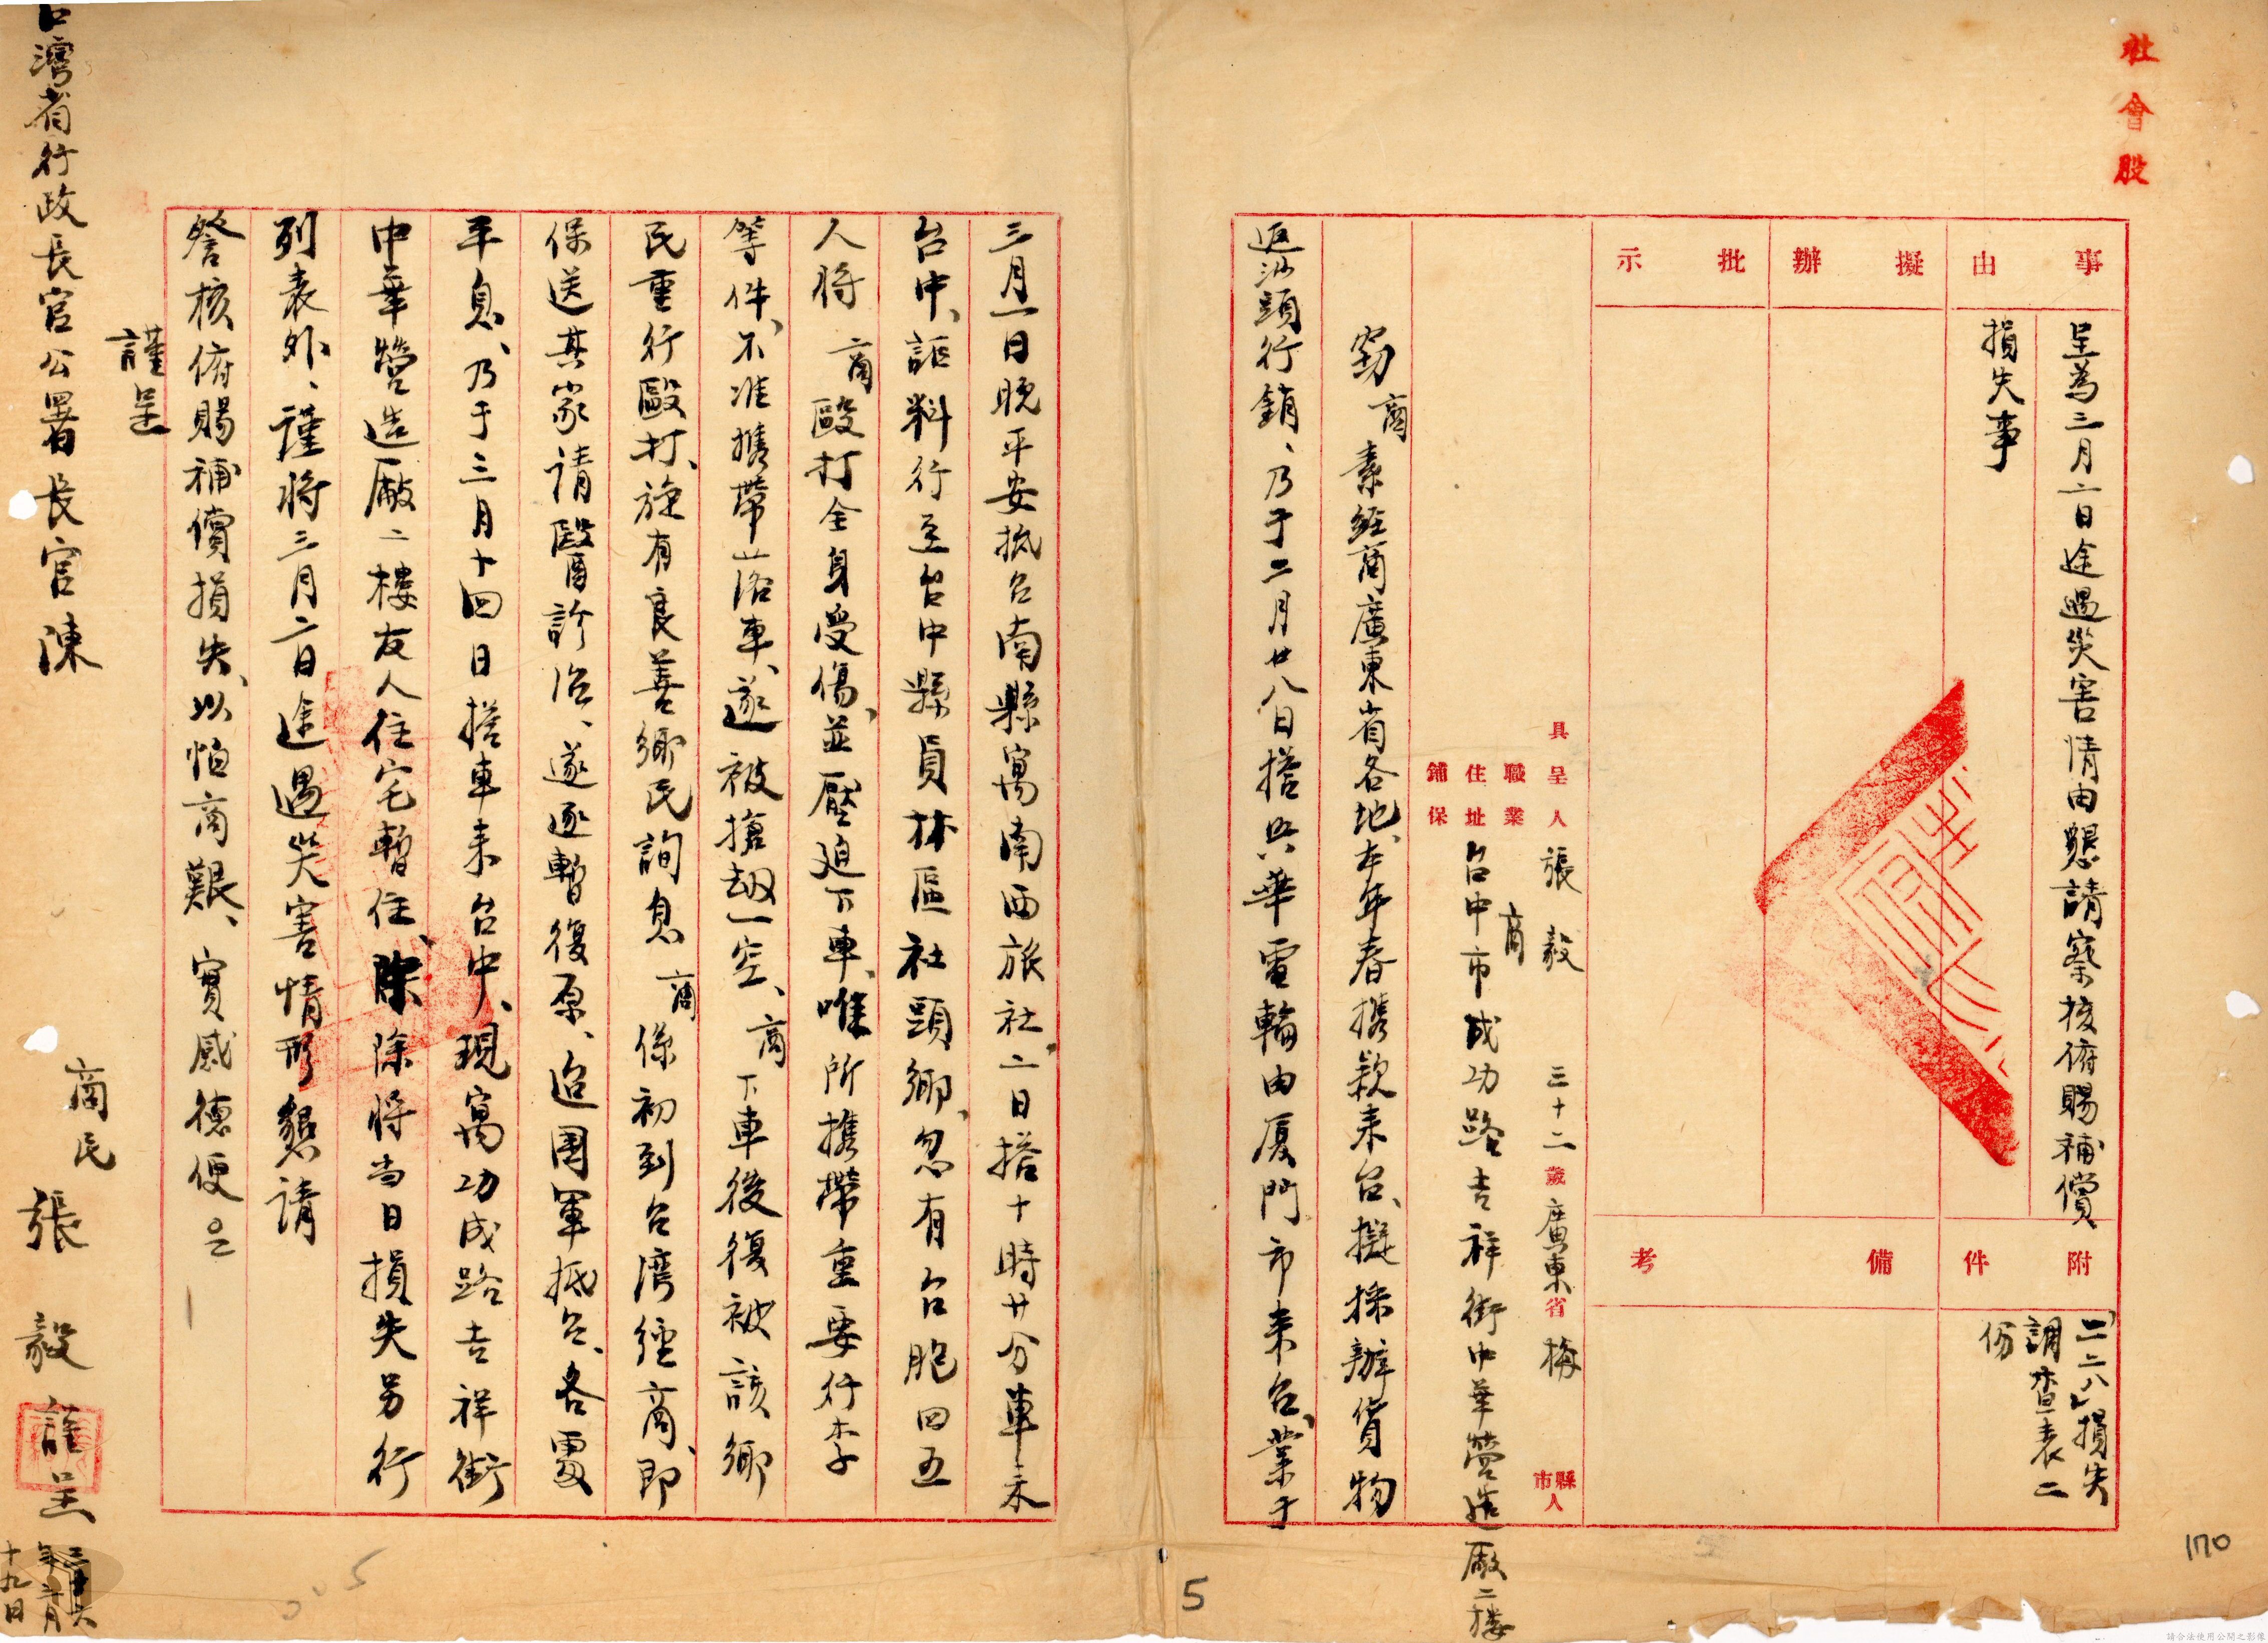 社會股
事由
呈為三月二日途遇災害情由懇請察核俯賜補償
損失事
擬辦
批示
附件
二、二八損失
調查表二
份
備考
具呈人 張毅 三十二歲 廣東省梅 縣市人
職業 商
住址 台中市成功路吉祥街中華營造廠二樓
鋪保
竊商素經商廣東省各地、本年春携款来台、擬採辦貨物
返汕頭行銷、乃于二月廿八日搭興華電輪由廈門市来台、業于
三月一日晚平安抵台南縣寓南西旅社、二日搭十時廿分車来
台中、詎料行至台中縣員林區社頭鄉、忽有台胞四五
人將商毆打全身受傷、並壓迫下車、唯所携帶重要行李
等件、不准携帶落車、遂被搶劫一空、商下車後復被該鄉
民重行毆打、旋有良善鄉民詢息商係初到台湾經商、即
保送其家請醫診治、遂逐暫復原、迨国軍抵台、各處
平息、乃于三月十四日搭車来台中、現寓功成路吉祥街
中華營造廠二樓友人住宅暫住、除除將当日損失另行
列表外、謹將三月二日途遇災害情形懇請
詧核俯賜補償損失、以恤商艱、實感德便 㠯
謹呈
台灣省行政長官公署長官陳
商民 張毅 謹呈
三十六
年三月
十九日
5
170
請合法使用公開之影像